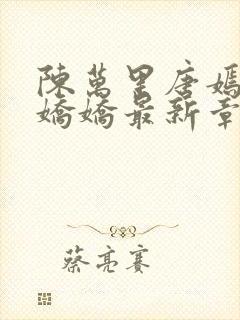 陳萬里唐嫣
嬌嬌最新章
蔡亮賽